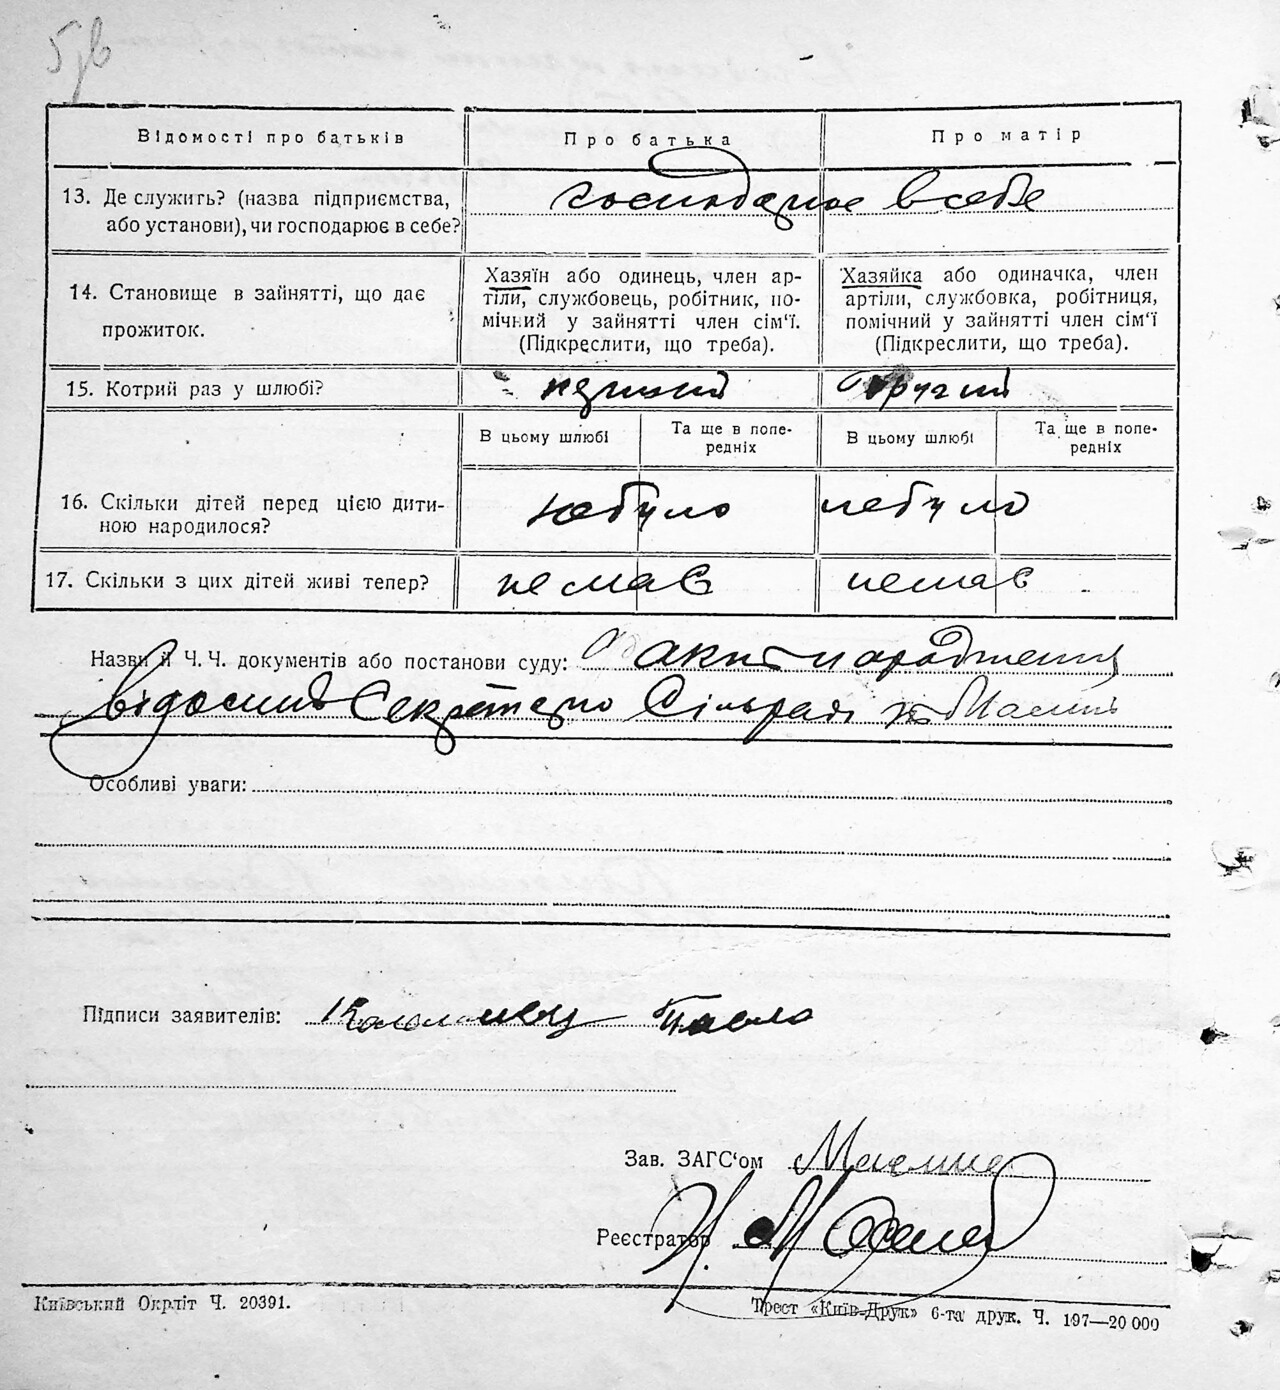 5
Відомості про батьків
Про батька
Про матір
13. Де служить? (назва підприємства,
або установи), чи господарює в себе?
господарює в себе
14. Становище в зайнятті, що дає
прожиток.
Хазяїн або одинець, член ар-
тіли, службовець, робітник, по-
мічний у зайнятті член сім'ї.
(Підкреслити, що треба).
Хазяйка або одиначка, член
артіли, службовка, робітниця,
помічний у зайнятті член сім'ї
(Підкреслити, що треба).
15. Котрий раз у шлюбі?
перший
другий
В цьому шлюбі
Та ще в попе-
редніх
В цьому шлюбі
Та ще в попе-
редніх
16. Скільки дітей перед цією дити-
ною народилося?
небуло
небуло
17. Скільки з цих дітей живі тепер?
немає
немає
Назви й Ч. Ч. документів або постанови суду: акт народження
відомий Секретарю Сільради
Особливі уваги:
Підписи заявителів: Коломиец Павло
Зав. ЗАГС'ом
Реєстратор
Київський Окрліт Ч. 20391.
Трест «Київ-Друк» 6-та друк. Ч. 197—20 000